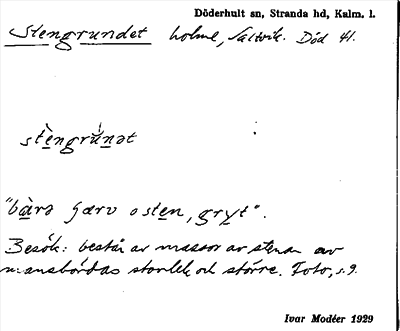 Döderhult sn, Stranda hd, Kalm. l.
Stengrundet holme, Saltvik. Död 41.
stèngrúnət
"bàrə særv o sten, gryt".
Besök: består av massor av stenar av
mansbördas storlek och större. Foto, s. 9.
Ivar Modéer 1929